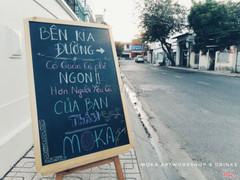 BÊN KIA
ĐƯỜNG →
Có Quán Cà phê
NGON!!
Hơn Người Yêu Cũ
CỦA BẠN
MOKA
MOKA ARTWORKSHOP & DRINKS